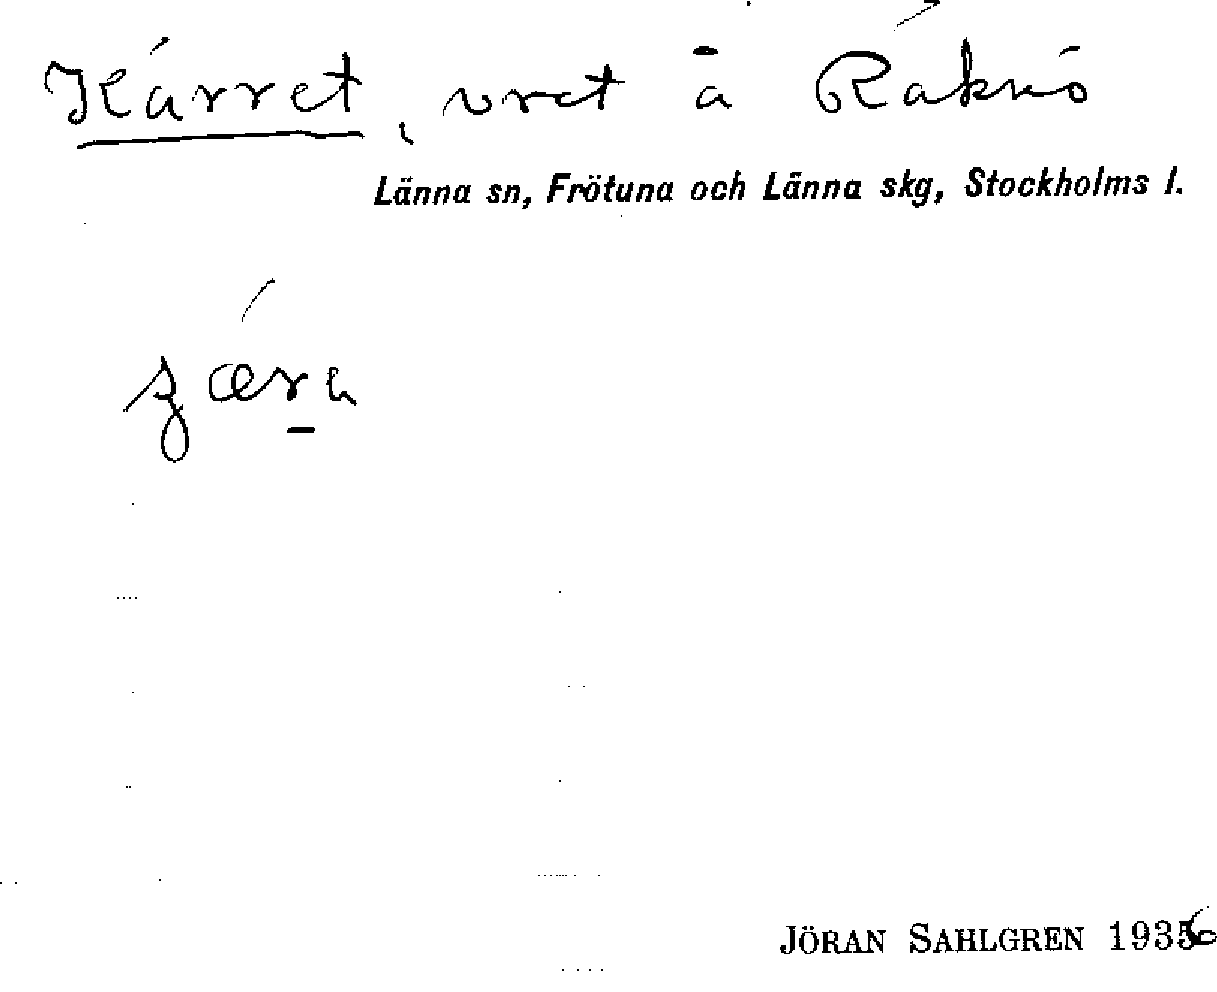 Kärret, vret å Råknö
Länna sn, Frötuna och Länna skg, Stockholms l.
JÖRAN SAHLGREN 1936